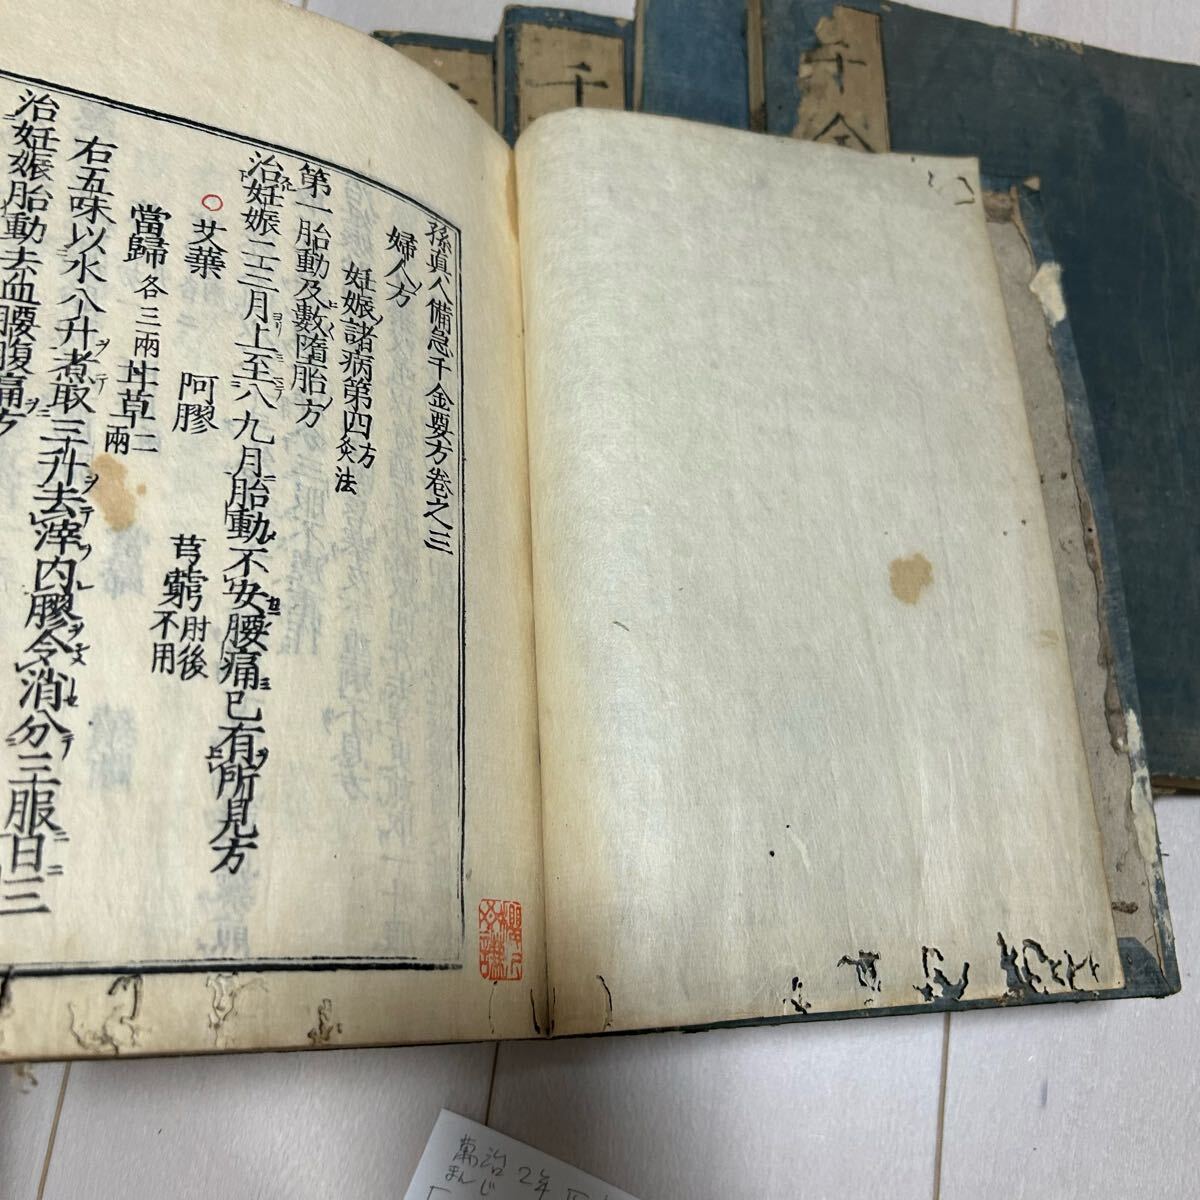 孫真人備急千金要方卷之三
婦人方
妊娠諸病第四方灸法
第一胎動及數墮胎方
治妊娠二三月上至八九月胎動不安腰痛已有所見方
艾葉 阿膠 芎藭肘後不用
當歸各三兩 甘草二兩
右五味以水八升煮取三升去滓内膠令消分三服日三
治妊娠胎動去血腰腹痛方
千
千金
萬治2年
まんじ